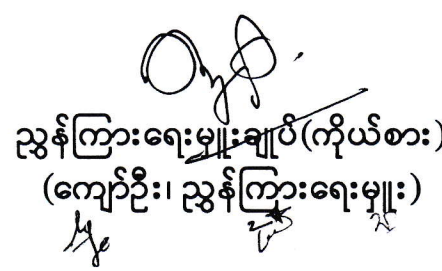 ညွှန်ကြားရေးမှူးချုပ်(ကိုယ်စား)
(ကျော်ဦး၊ ညွှန်ကြားရေးမှူး)